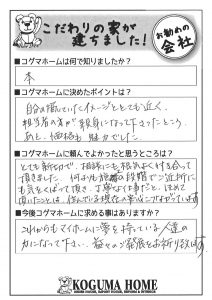 こだわりの家が
建ちました!
お勧めの
会社
■コグマホームは何で知りましたか?
本
■コグマホームに決めたポイントは?
自分の描いていたイメージととても近く、
担当者の方が親身になって下さったところ。
あと、価格も魅力でした。
■コグマホームに頼んでよかったと思うところは?
とても親切で、相談にも根気よく付き合って
頂きました。何よりも
の段階でご近所に
も気をくばって頂き、丁寧な仕事だと、ほめて
頂いたことは、住んでいる現在の幸せにつながっています
■今後コグマホームに求める事はありますか?
これからもマイホームに夢を持っている人達の
力になって下さい。益々のご発展をお祈り致します。
KOGUMA HOME